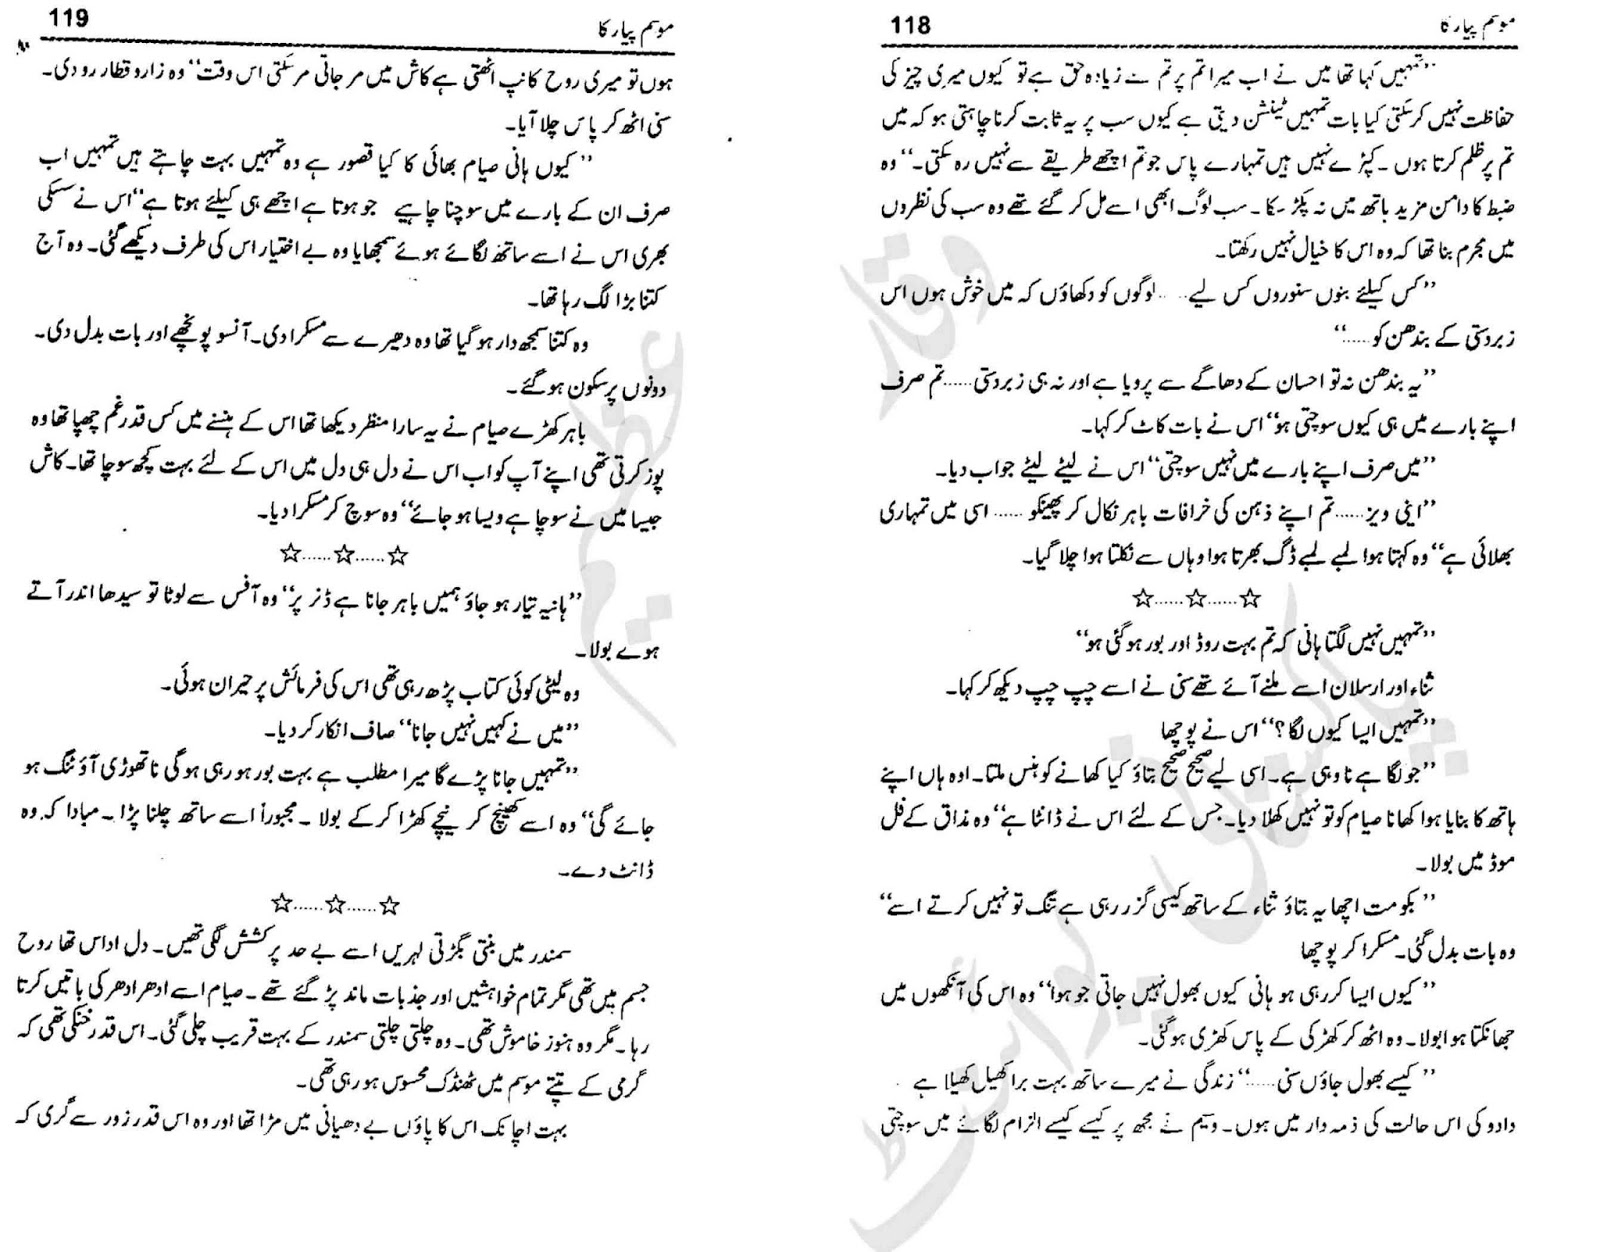 موسم پیار کا 118
”تمہیں کہا تھا میں نے اب میرا تم پر تم سے زیادہ حق ہے تو کیوں میری چیز کی
حفاظت نہیں کر سکتی کیا بات تمہیں ٹینشن دیتی ہے کیوں سب پر یہ ثابت کرنا چاہتی ہو کہ میں
تم پر ظلم کرتا ہوں ۔ کپڑے نہیں ہیں تمہارے پاس جو تم اچھے طریقے سے نہیں رہ سکتی۔“ وہ
ضبط کا دامن مزید ہاتھ میں نہ پکڑ سکا۔ سب لوگ ابھی اسے مل کر گئے تھے وہ سب کی نظروں
میں مجرم بنا تھا کہ وہ اس کا خیال نہیں رکھتا۔
”کس کیلئے بنوں سنوروں کس لیے ..... لوگوں کو دکھاؤں کہ میں خوش ہوں اس
زبردستی کے بندھن کو......“
”یہ بندھن نہ تو احسان کے دھاگے سے پرویا ہے اور نہ ہی زبردستی ...... تم صرف
اپنے بارے میں ہی کیوں سوچتی ہو“ اس نے بات کاٹ کر کہا۔
”میں صرف اپنے بارے میں نہیں سوچتی“ اس نے لیٹے لیٹے جواب دیا۔
”اینی ویز...... تم اپنے ذہن کی خرافات باہر نکال کر پھینکو ...... اسی میں تمہاری
بھلائی ہے“ وہ کہتا ہوا لمبے لمبے ڈگ بھرتا ہوا وہاں سے نکلتا ہوا چلا گیا۔
☆......☆......☆
”تمہیں نہیں لگتا ہانی کہ تم بہت روڈ اور بور ہو گئی ہو“
ثناء اور ارسلان اسے ملنے آئے تھے سنی نے اسے چپ چپ دیکھ کر کہا۔
”تمہیں ایسا کیوں لگا؟“ اس نے پوچھا
”جو لگا ہے نا وہی ہے۔ اسی لیے صحیح صحیح بتاؤ کیا کھانے کو نہیں ملتا۔ اوہ ہاں اپنے
ہاتھ کا بنایا ہوا کھانا صیام کو تو نہیں کھلا دیا۔ جس کے لئے اس نے ڈانٹا ہے“ وہ مذاق کے فل
موڈ میں بولا۔
”بکو مت اچھا یہ بتاؤ ثناء کے ساتھ کیسی گزر رہی ہے تنگ تو نہیں کرتے اسے“
وہ بات بدل گئی۔ مسکرا کر پوچھا
”کیوں ایسا کر رہی ہو ہانی کیوں بھول نہیں جاتی جو ہوا“ وہ اس کی آنکھوں میں
جھانکتا ہوا بولا۔ وہ اٹھ کر کھڑکی کے پاس کھڑی ہو گئی۔
”کیسے بھول جاؤں سنی......“ زندگی نے میرے ساتھ بہت برا کھیل کھیلا ہے
دادو کی اس حالت کی ذمہ دار میں ہوں۔ وسیم نے مجھ پر کیسے کیسے الزام لگائے میں سوچتی
موسم پیار کا 119
ہوں تو میری روح کانپ اٹھتی ہے کاش میں مر جاتی مر سکتی اس وقت“ وہ زار و قطار رو دی۔
سنی اٹھ کر پاس چلا آیا۔
”کیوں ہانی صیام بھائی کا کیا قصور ہے وہ تمہیں بہت چاہتے ہیں تمہیں اب
صرف ان کے بارے میں سوچنا چاہیے جو ہوتا ہے اچھے ہی کیلئے ہوتا ہے“ اس نے سسکی
بھری اس نے اسے ساتھ لگائے ہوئے سمجھایا وہ بے اختیار اس کی طرف دیکھے گئی۔ وہ آج
کتنا بڑا لگ رہا تھا۔
وہ کتنا سمجھ دار ہو گیا تھا وہ دھیرے سے مسکرا دی۔ آنسو پونچھے اور بات بدل دی۔
دونوں پرسکون ہو گئے۔
باہر کھڑے صیام نے یہ سارا منظر دیکھا تھا اس کے ہنسنے میں کس قدر غم چھپا تھا وہ
پوز کرتی تھی اپنے آپ کو اب اس نے دل ہی دل میں اس کے لئے بہت کچھ سوچا تھا۔ کاش
جیسا میں نے سوچا ہے ویسا ہو جائے“ وہ سوچ کر مسکرا دیا۔
☆......☆......☆
”ہانیہ تیار ہو جاؤ ہمیں باہر جانا ہے ڈنر پر“ وہ آفس سے لوٹا تو سیدھا اندر آتے
ہوے بولا۔
وہ لیٹی کوئی کتاب پڑھ رہی تھی اس کی فرمائش پر حیران ہوئی۔
”میں نے کہیں نہیں جانا“ صاف انکار کر دیا۔
”تمہیں جانا پڑے گا میرا مطلب ہے بہت بور ہو رہی ہو گی نا تھوڑی آؤٹنگ ہو
جائے گی“ وہ اسے کھینچ کر نیچے کھڑا کر کے بولا ۔ مجبوراً اسے ساتھ چلنا پڑا ۔ مبادا کہ وہ
ڈانٹ دے۔
☆......☆......☆
سمندر میں بنتی بگڑتی لہریں اسے بے حد پرکشش لگی تھیں۔ دل اداس تھا روح
جسم میں تھی مگر تمام خواہشیں اور جذبات ماند پڑ گئے تھے ۔ صیام اسے ادھر ادھر کی باتیں کرتا
رہا۔ مگر وہ ہنوز خاموش تھی۔ وہ چلتی چلتی سمندر کے بہت قریب چلی گئی۔ اس قدر خنکی تھی کہ
گرمی کے تپتے موسم میں ٹھنڈک محسوس ہو رہی تھی۔
بہت اچانک اس کا پاؤں بے دھیانی میں مڑا تھا اور وہ اس قدر زور سے گری کہ
عظیم
وقار
پاکستانی پوائنٹ